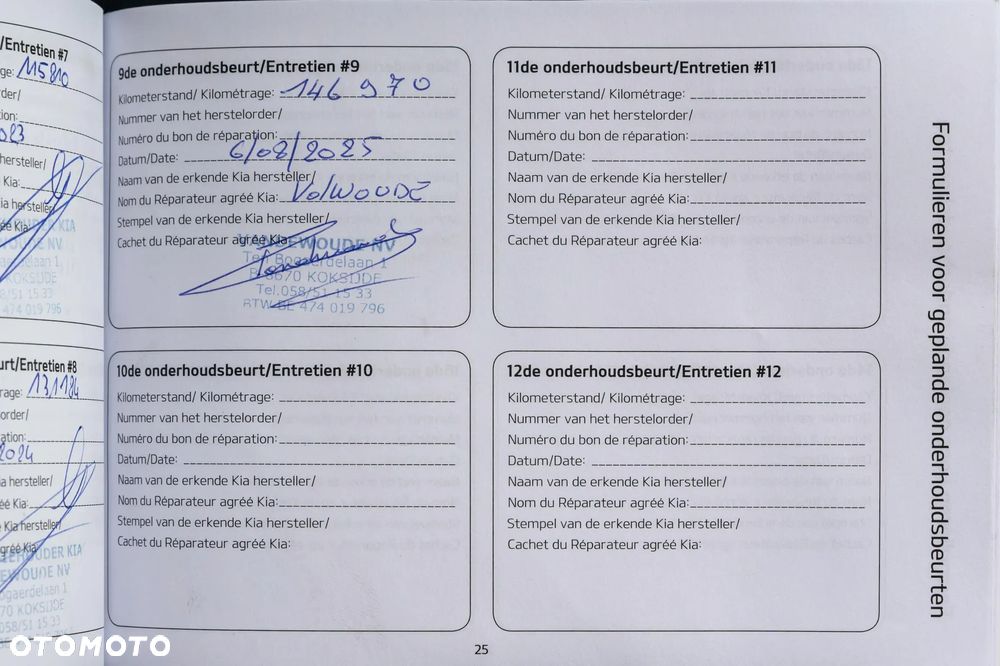 /Entretien #7
ge: 115810
der/
ion:
023
hersteller/
Kia:
ia hersteller/
éé Kia:
HOUDER KIA
WOUDE NV
8/51 15 33
474 019 796
urt/Entretien #8
rage: 131184
lorder/
ation:
2024
a hersteller/
éé Kia:
Kia hersteller/
gréé Kia:
HOUDER KIA
EWOUDE NV
ogaerdelaan 1
70 KOKSIJDE
058/51 15 33
9de onderhoudsbeurt/Entretien #9
Kilometerstand/ Kilométrage: 146 970
Nummer van het herstelorder/
Numéro du bon de réparation:
Datum/Date: 6/08/2025
Naam van de erkende Kia hersteller/
Nom du Réparateur agréé Kia: Vd WOUDE
Stempel van de erkende Kia hersteller/
Cachet du Réparateur agréé Kia:
VANDEWOUDE NV
Ten Bogaerdelaan 1
B-8670 KOKSIJDE
Tel.058/51 15 33
BTW-BE 474 019 796
10de onderhoudsbeurt/Entretien #10
Kilometerstand/ Kilométrage:
Nummer van het herstelorder/
Numéro du bon de réparation:
Datum/Date:
Naam van de erkende Kia hersteller/
Nom du Réparateur agréé Kia:
Stempel van de erkende Kia hersteller/
Cachet du Réparateur agréé Kia:
11de onderhoudsbeurt/Entretien #11
Kilometerstand/ Kilométrage:
Nummer van het herstelorder/
Numéro du bon de réparation:
Datum/Date:
Naam van de erkende Kia hersteller/
Nom du Réparateur agréé Kia:
Stempel van de erkende Kia hersteller/
Cachet du Réparateur agréé Kia:
12de onderhoudsbeurt/Entretien #12
Kilometerstand/ Kilométrage:
Nummer van het herstelorder/
Numéro du bon de réparation:
Datum/Date:
Naam van de erkende Kia hersteller/
Nom du Réparateur agréé Kia:
Stempel van de erkende Kia hersteller/
Cachet du Réparateur agréé Kia:
Formulieren voor geplande onderhoudsbeurten
25
OTOMOTO